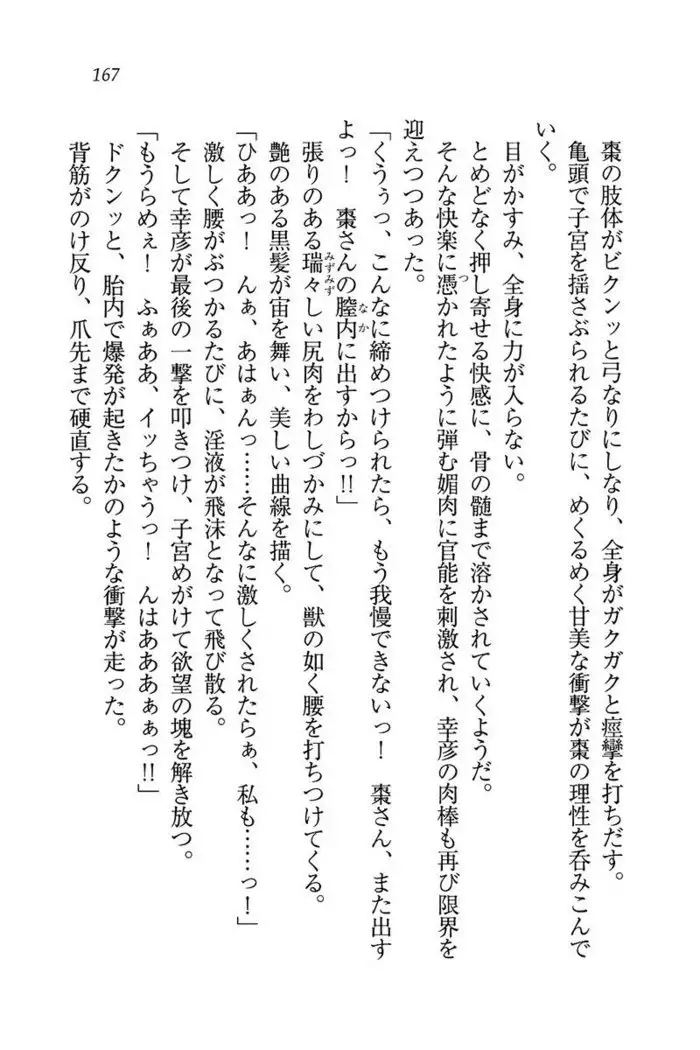 167
棗の肢体がビクンッと弓なりにしなり、全身がガクガクと痙攣を打ちだす。
亀頭で子宮を揺さぶられるたびに、めくるめく甘美な衝撃が棗の理性を呑みこんで
いく。
目がかすみ、全身に力が入らない。
とめどなく押し寄せる快感に、骨の髄まで溶かされていくようだ。
そんな快楽に憑かれたように弾む媚肉に官能を刺激され、幸彦の肉棒も再び限界を
迎えつつあった。
「くうぅっ、こんなに締めつけられたら、もう我慢できないっ！　棗さん、また出す
よっ！　棗さんの膣内に出すからっ!!」
張りのある瑞々しい尻肉をわしづかみにして、獣の如く腰を打ちつけてくる。
艶のある黒髪が宙を舞い、美しい曲線を描く。
「ひああっ！　んぁ、あはぁんっ……そんなに激しくされたらぁ、私も……っ！」
激しく腰がぶつかるたびに、淫液が飛沫となって飛び散る。
そして幸彦が最後の一撃を叩きつけ、子宮めがけて欲望の塊を解き放つ。
「もうらめぇ！　ふぁああ、イッちゃうっ！　んはあああぁぁっ!!」
ドクンッと、胎内で爆発が起きたかのような衝撃が走った。
背筋がのけ反り、爪先まで硬直する。